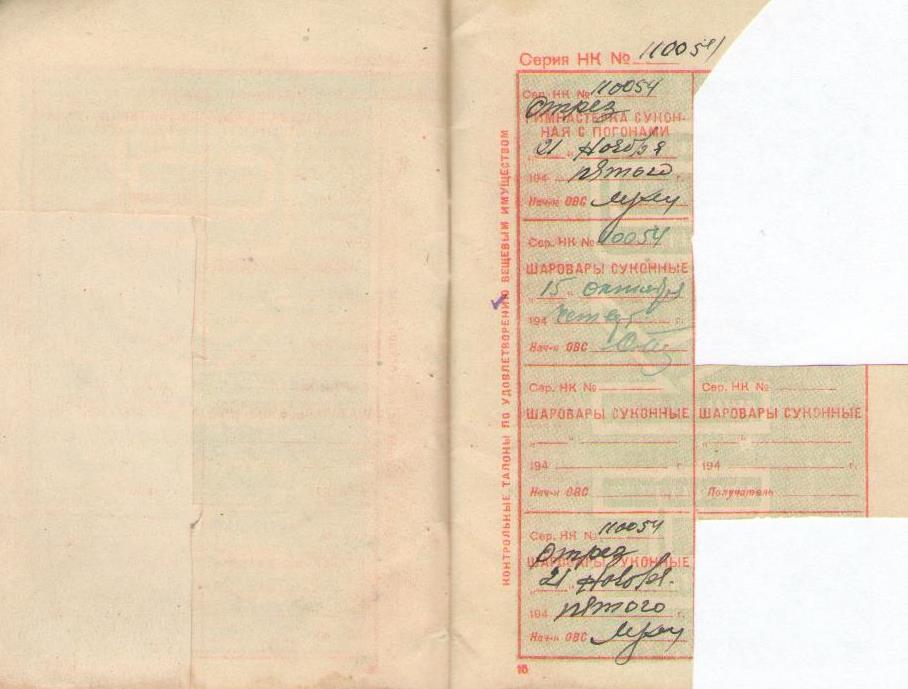 Серия НК № 110054
КОНТРОЛЬНЫЕ ТАЛОНЫ ПО УДОВЛЕТВОРЕНИЮ ВЕЩЕВЫМ ИМУЩЕСТВОМ
Сер. НК № 110054
Отрез
ГИМНАСТЕРКА СУКОН-
НАЯ С ПОГОНАМИ
„21" Ноября
194 пятого г.
Нач-к ОВС
Сер. НК № 110054
ШАРОВАРЫ СУКОННЫЕ
„15" октября
194 г.
Нач-к ОВС
Сер. НК №
ШАРОВАРЫ СУКОННЫЕ
„ "
194 г.
Нач-к ОВС
Сер. НК №
ШАРОВАРЫ СУКОННЫЕ
„ "
194 г.
Получатель
Сер. НК № 110054
Отрез
ШАРОВАРЫ СУКОННЫЕ
„21" Ноября
194 пятого г.
Нач-к ОВС
16